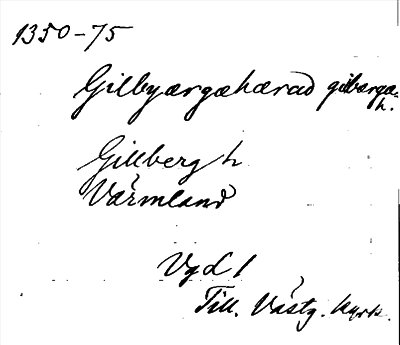 1350-75
Gilbyærgæhærad gilbærgæ-
h.
Gillberg h
Värmland
Vgd 1
Till. Västg. kyrk.